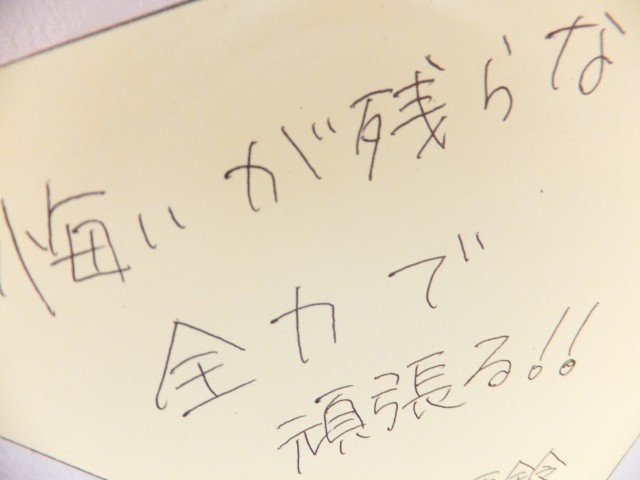 悔いが残らな
全力で
頑張る!!